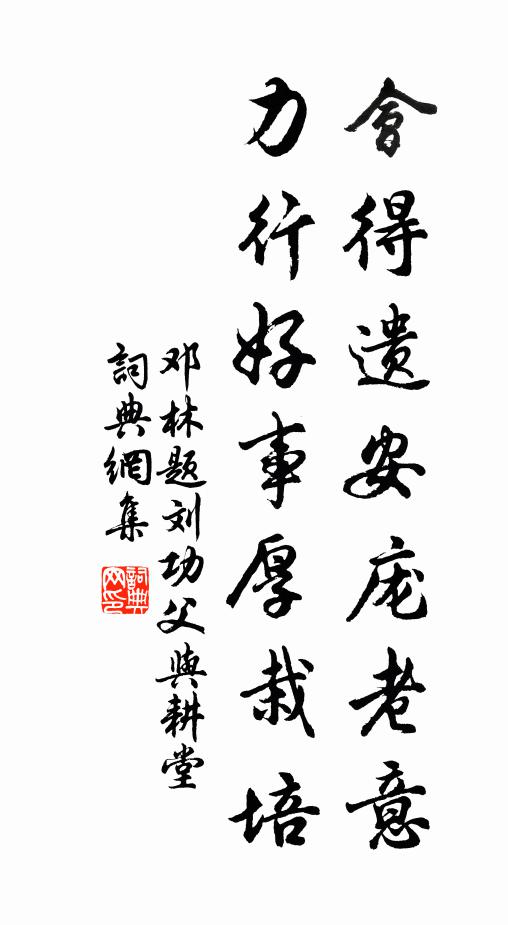 會得遗安庞老意
力行好事厚栽培
邓林题刘功父與耕堂
詞典網集
詞典网印